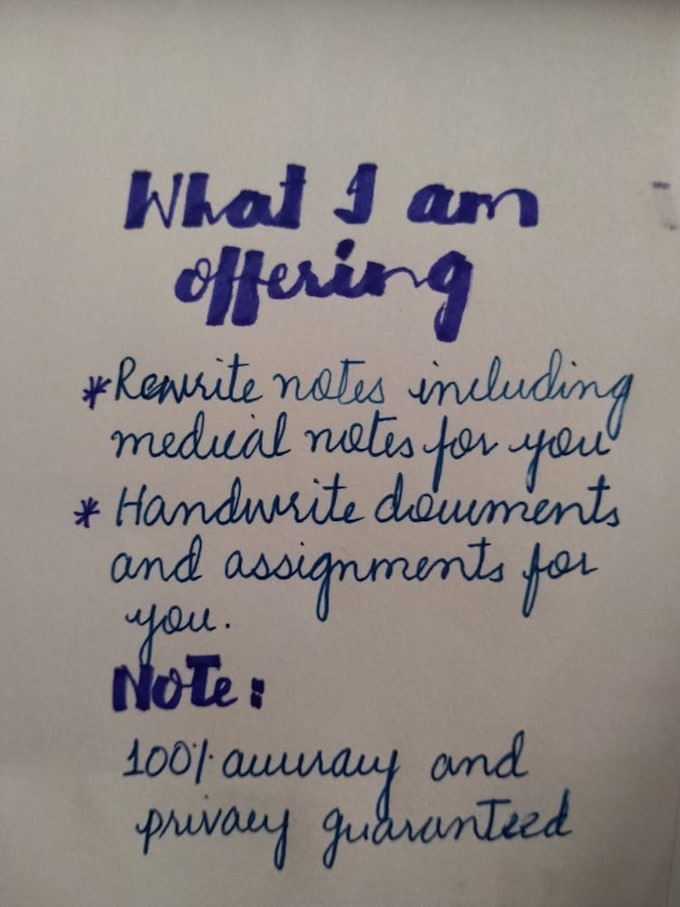 What I am
offering
* Rewrite notes including
medical notes for you
* Handwrite documents
and assignments for
you.
Note:
100% accuracy and
privacy guaranteed